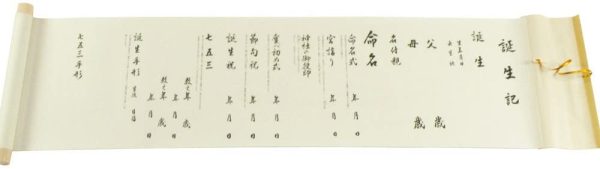 誕生記
誕生
生年月日
出生地
父 歳
母 歳
名付親
命名
命名式 年 月 日
宮詣り 年 月 日
神社の御授印
食い初め式 年 月 日
節句祝 年 月 日
誕生祝 年 月 日
七五三
数え年 歳
年 月 日
数え年 歳
年 月 日
誕生手形
七五三手形